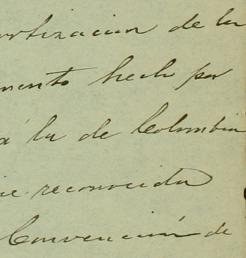 ortizacion de la
mento hech por
a la de Colombia
ue reconocida
Convencion de